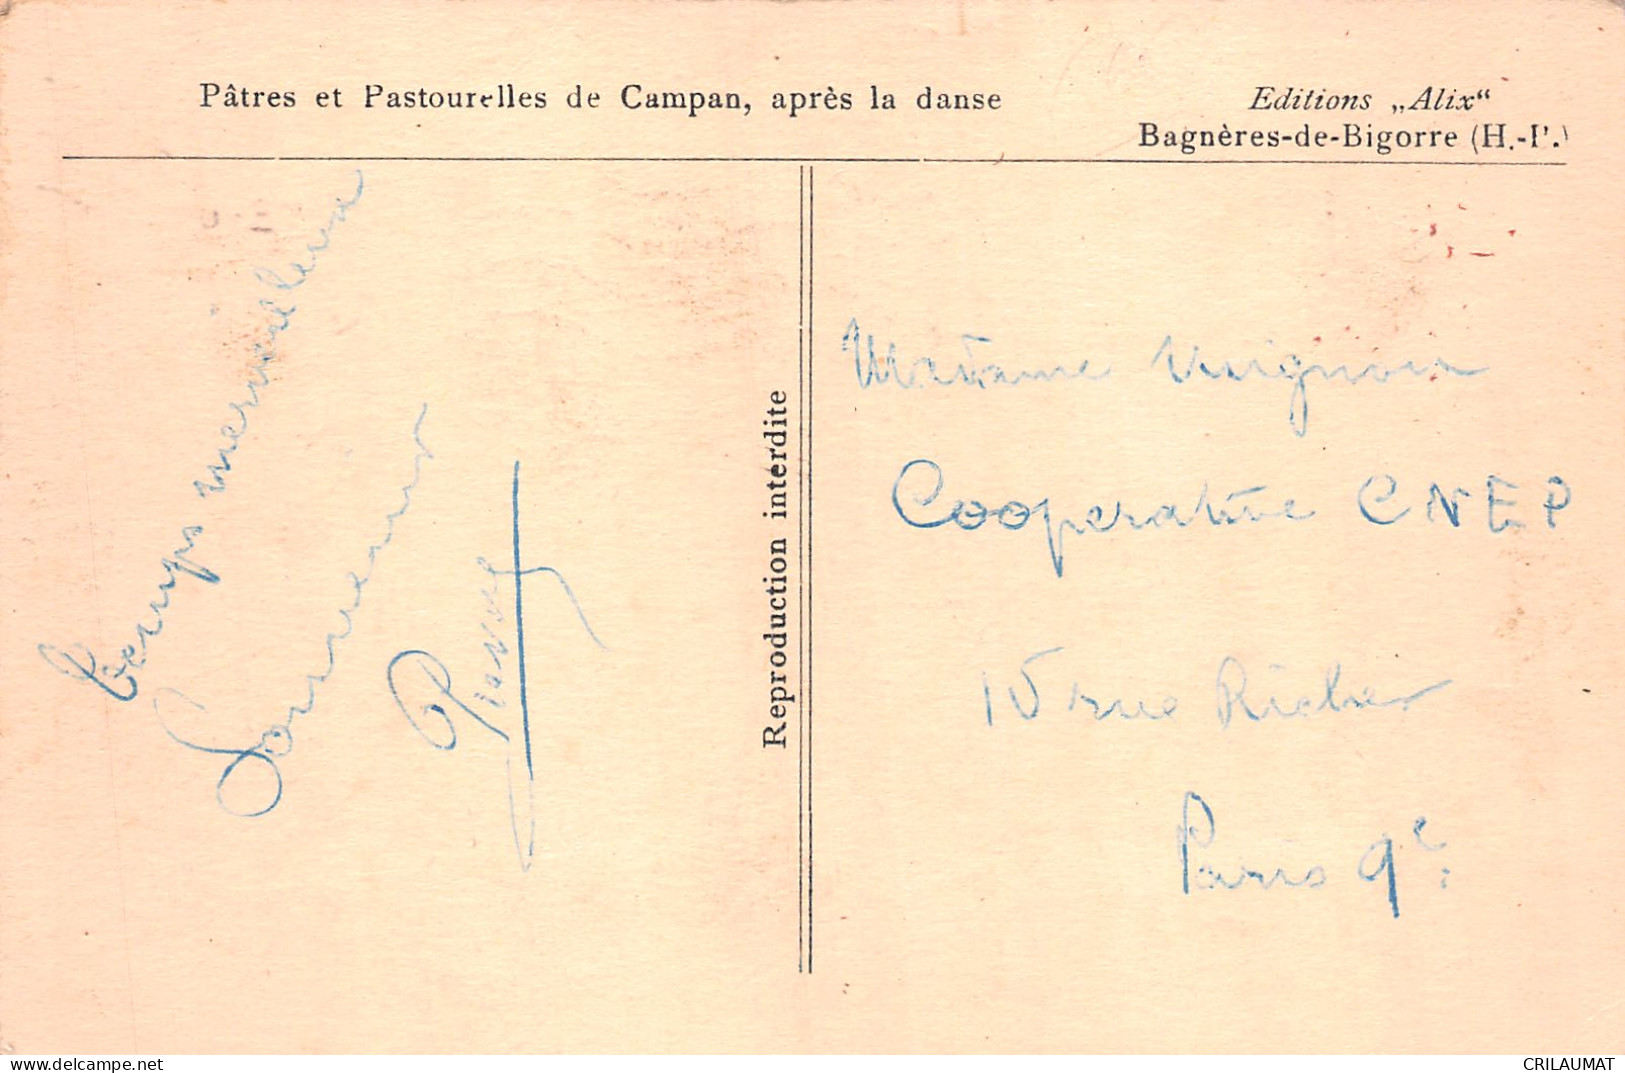 Pâtres et Pastourelles de Campan, après la danse
Editions „Alix“
Bagnères-de-Bigorre (H.-P.)
Temps merveilleux
Souvenirs
Reproduction interdite
Madame
Cooperative CNEP
15 rue Richer
Paris 9e
www.delcampe.net
CRILAUMAT